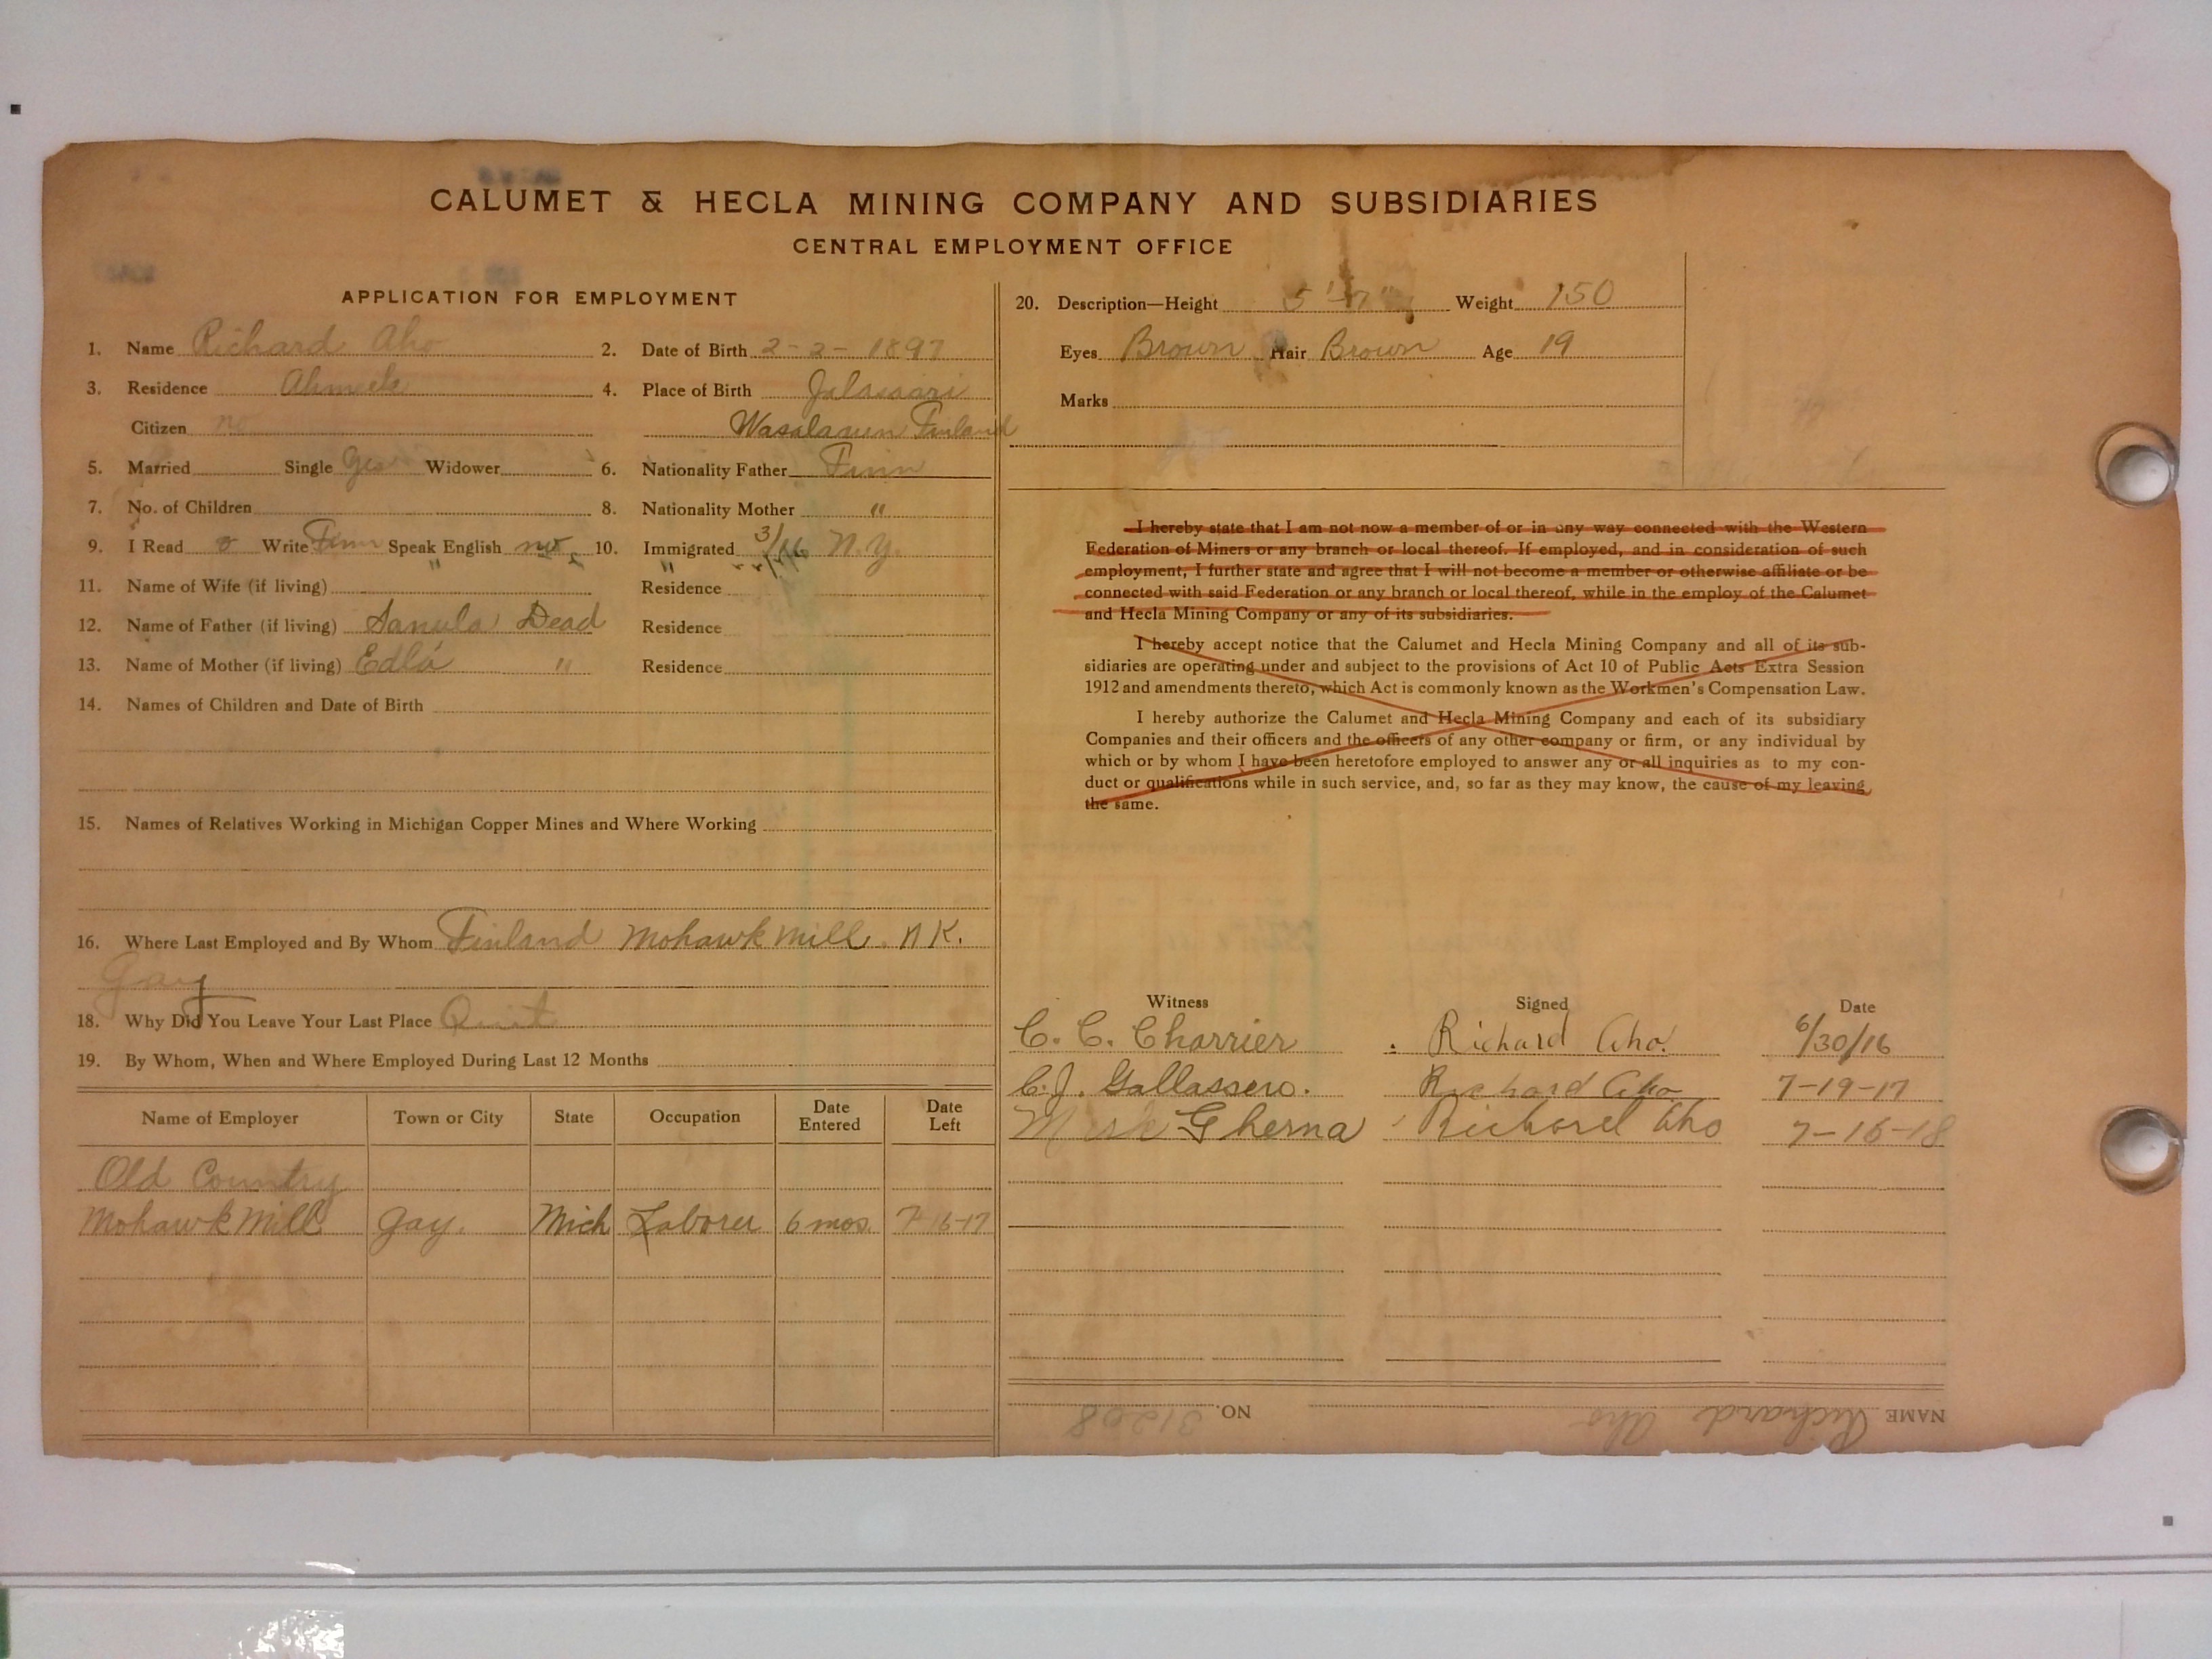 CALUMET & HECLA MINING COMPANY AND SUBSIDIARIES
CENTRAL EMPLOYMENT OFFICE
APPLICATION FOR EMPLOYMENT
1. Name Richard Aho 2. Date of Birth 2-2-1897
3. Residence Ahmeek 4. Place of Birth Jalasaari
Citizen no Wasalanen Finland
5. Married Single Yes Widower 6. Nationality Father Finn
7. No. of Children 8. Nationality Mother "
9. I Read & Write Finn Speak English no 10. Immigrated 3/16 N.Y.
11. Name of Wife (if living) Residence
12. Name of Father (if living) Sanula Dead Residence
13. Name of Mother (if living) Edla " Residence
14. Names of Children and Date of Birth
15. Names of Relatives Working in Michigan Copper Mines and Where Working
16. Where Last Employed and By Whom Finland Mohawk Mill. N K.
Gay
18. Why Did You Leave Your Last Place Quit
19. By Whom, When and Where Employed During Last 12 Months
Name of Employer Town or City State Occupation Date Entered Date Left
Old Country
Mohawk Mill Gay. Mich Laborer 6 mos. 7-16-17
20. Description—Height 5'-7" Weight 150
Eyes Brown Hair Brown Age 19
Marks
I hereby state that I am not now a member of or in any way connected with the Western
Federation of Miners or any branch or local thereof. If employed, and in consideration of such
employment, I further state and agree that I will not become a member or otherwise affiliate or be
connected with said Federation or any branch or local thereof, while in the employ of the Calumet
and Hecla Mining Company or any of its subsidiaries.
I hereby accept notice that the Calumet and Hecla Mining Company and all of its sub-
sidiaries are operating under and subject to the provisions of Act 10 of Public Acts Extra Session
1912 and amendments thereto, which Act is commonly known as the Workmen's Compensation Law.
I hereby authorize the Calumet and Hecla Mining Company and each of its subsidiary
Companies and their officers and the officers of any other company or firm, or any individual by
which or by whom I have been heretofore employed to answer any or all inquiries as to my con-
duct or qualifications while in such service, and, so far as they may know, the cause of my leaving
the same.
Witness Signed Date
C. C. Charrier Richard Aho. 6/30/16
C. J. Gallassero. Richard Aho 7-19-17
Gherna Richard Aho 7-16-18
NAME Richard Aho NO. 31208